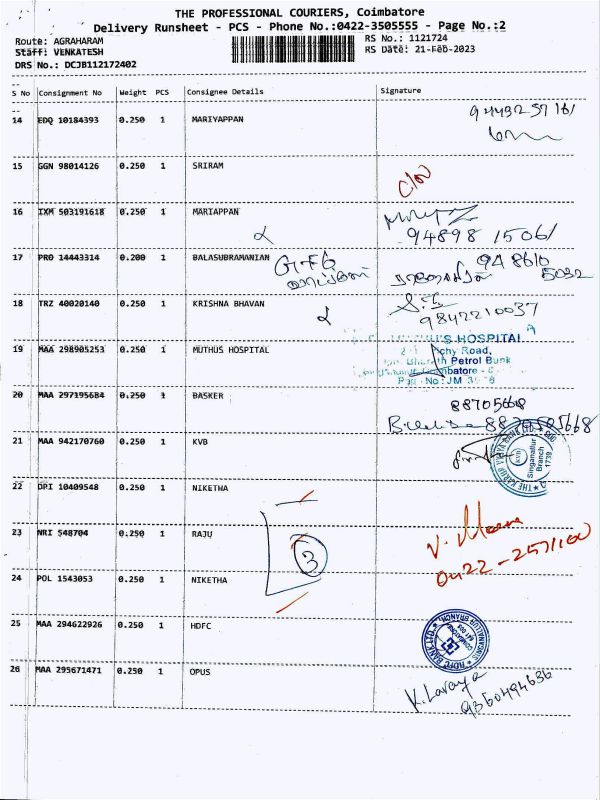 THE PROFESSIONAL COURIERS, Coimbatore
Delivery Runsheet - PCS - Phone No.:0422-3505555 - Page No.:2
Route: AGRAHARAM
Staff: VENKATESH
DRS No.: DCJB112172402
RS No.: 1121724
RS Date: 21-Feb-2023
S No Consignment No Weight PCS Consignee Details Signature
14 EDQ 10184393 0.250 1 MARIYAPPAN
15 GGN 98014126 0.250 1 SRIRAM
16 IXM 503191618 0.250 1 MARIAPPAN
94898 15061
17 PRO 14443314 0.200 1 BALASUBRAMANIAN
948610
5032
18 TRZ 40020140 0.250 1 KRISHNA BHAVAN
9842210037
19 MAA 298905253 0.250 1 MUTHUS HOSPITAL
HOSPITAL
Road,
Petrol Bunk
20 MAA 297195684 0.250 1 BASKER
88705668
8870505668
21 MAA 942170760 0.250 1 KVB
Singanallur
Branch
1739
22 DPI 10409548 0.250 1 NIKETHA
23 NRI 548704 0.250 1 RAJU
3
V. Meena
24 POL 1543053 0.250 1 NIKETHA
25 MAA 294622926 0.250 1 HDFC
HDFC BANK LTD.
26 MAA 295671471 0.250 1 OPUS
K. Lavanya
9360494636